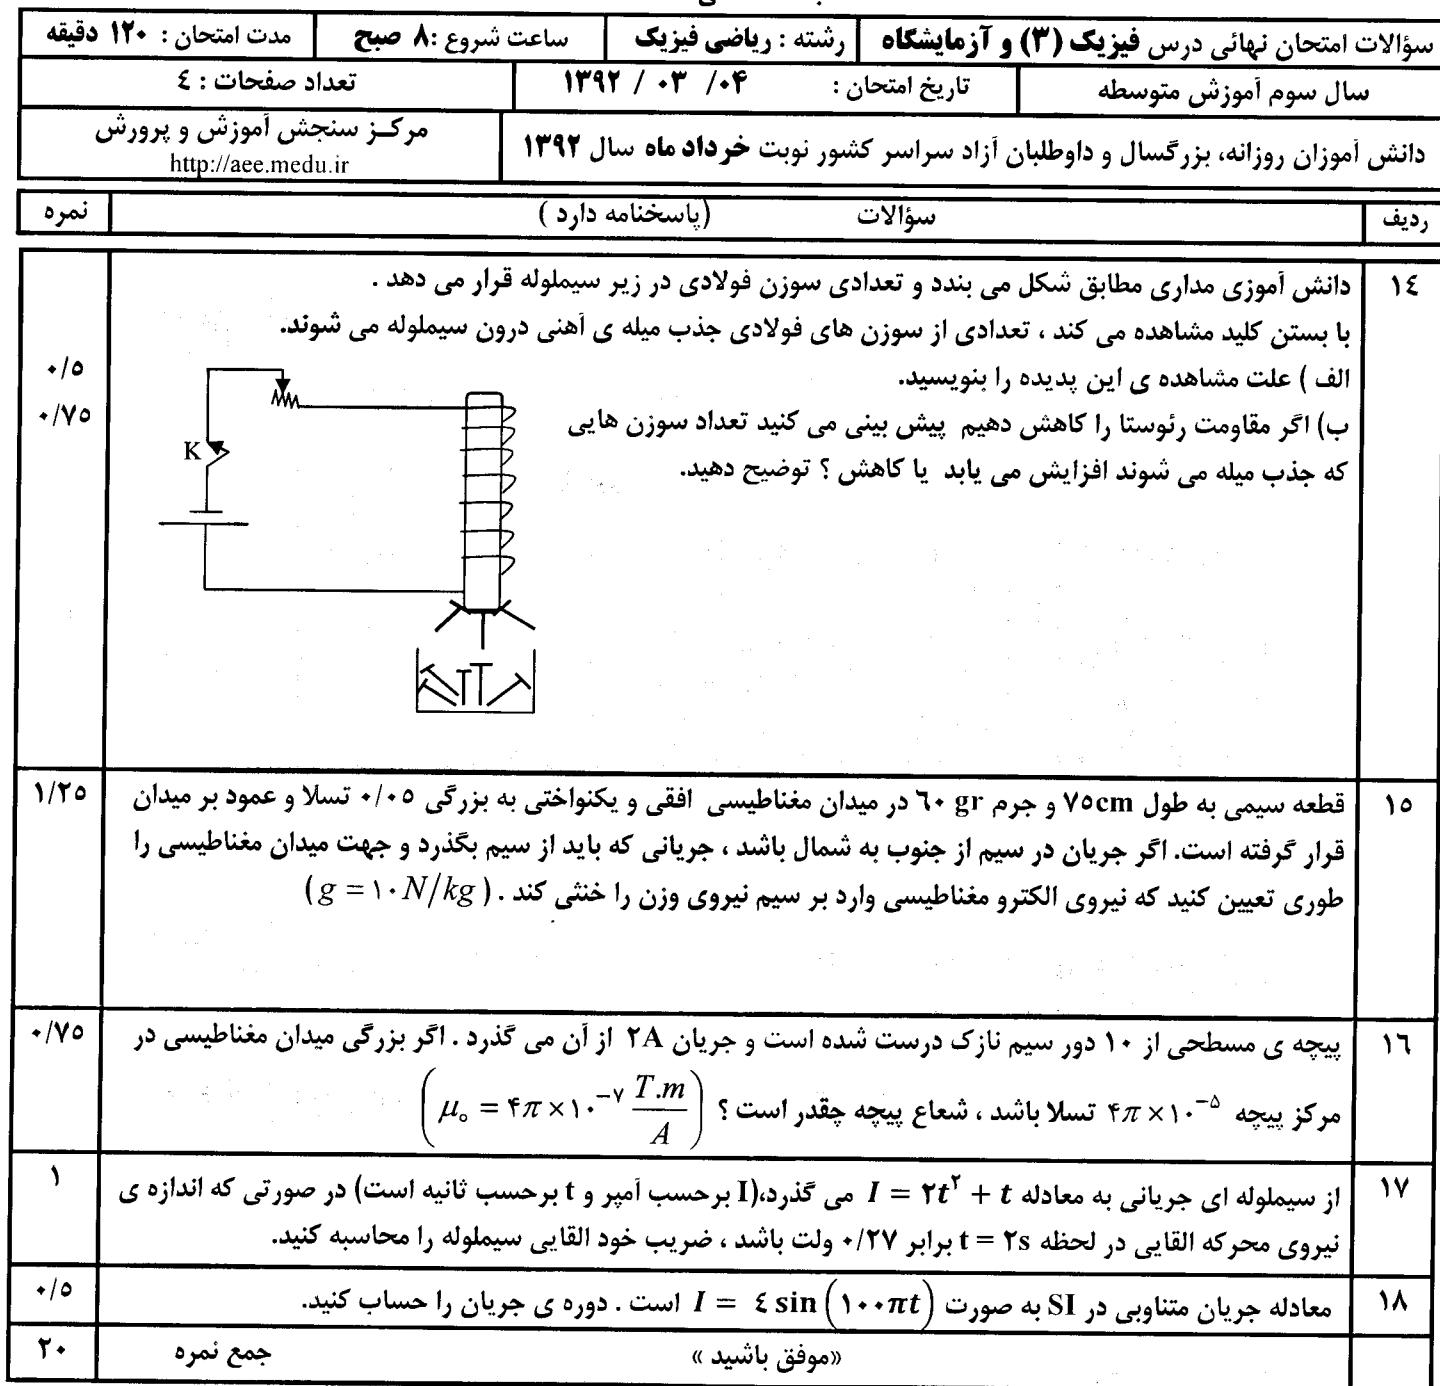 سؤالات امتحان نهائی درس فیزیک (۳) و آزمایشگاه رشته : ریاضی فیزیک ساعت شروع :۸ صبح مدت امتحان : ۱۲۰ دقیقه
سال سوم آموزش متوسطه تاریخ امتحان : ۰۴/ ۰۳ / ۱۳۹۲ تعداد صفحات : ٤
دانش آموزان روزانه، بزرگسال و داوطلبان آزاد سراسر کشور نوبت خرداد ماه سال ۱۳۹۲ مرکـز سنجش آموزش و پرورش
http://aee.medu.ir
ردیف سؤالات (پاسخنامه دارد ) نمره
۱٤ دانش آموزی مداری مطابق شکل می بندد و تعدادی سوزن فولادی در زیر سیملوله قرار می دهد .
با بستن کلید مشاهده می کند ، تعدادی از سوزن های فولادی جذب میله ی آهنی درون سیملوله می شوند.
الف ) علت مشاهده ی این پدیده را بنویسید. ۰/٥
ب) اگر مقاومت رئوستا را کاهش دهیم پیش بینی می کنید تعداد سوزن هایی ۰/۷٥
که جذب میله می شوند افزایش می یابد یا کاهش ؟ توضیح دهید.
K
۱٥ قطعه سیمی به طول ۷٥cm و جرم ٦۰ gr در میدان مغناطیسی افقی و یکنواختی به بزرگی ۰/۰٥ تسلا و عمود بر میدان ۱/۲٥
قرار گرفته است. اگر جریان در سیم از جنوب به شمال باشد ، جریانی که باید از سیم بگذرد و جهت میدان مغناطیسی را
طوری تعیین کنید که نیروی الکترو مغناطیسی وارد بر سیم نیروی وزن را خنثی کند . (g = ۱۰ N/kg)
۱٦ پیچه ی مسطحی از ۱۰ دور سیم نازک درست شده است و جریان ۲A از آن می گذرد . اگر بزرگی میدان مغناطیسی در ۰/۷٥
مرکز پیچه ۴π×۱۰⁻⁵ تسلا باشد ، شعاع پیچه چقدر است ؟ (μ₀ = ۴π×۱۰⁻⁷ T.m/A)
۱۷ از سیملوله ای جریانی به معادله I = ۲t² + t می گذرد،(I برحسب آمپر و t برحسب ثانیه است) در صورتی که اندازه ی ۱
نیروی محرکه القایی در لحظه t = ۲s برابر ۰/۲۷ ولت باشد ، ضریب خود القایی سیملوله را محاسبه کنید.
۱۸ معادله جریان متناوبی در SI به صورت I = ٤ sin (۱۰۰πt) است . دوره ی جریان را حساب کنید. ۰/٥
«موفق باشید » جمع نمره ۲۰